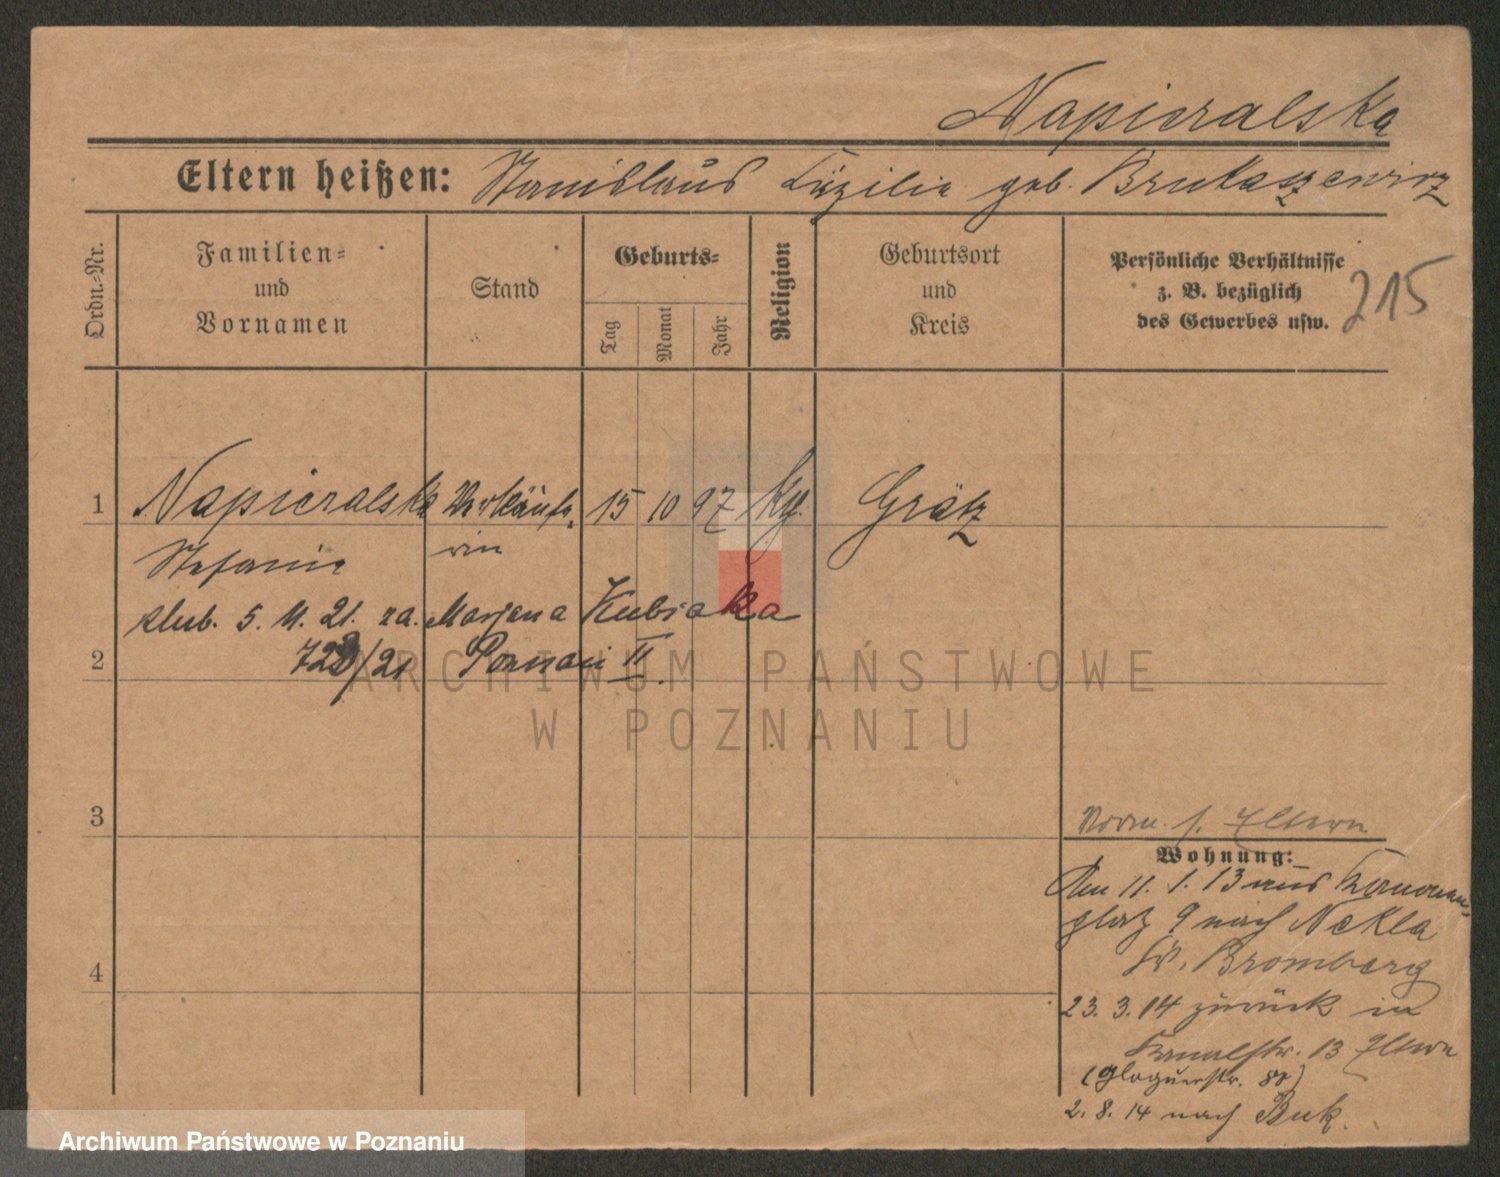 Napieralska
Eltern heißen: Stanislaus Cäzilie geb. Brukaszewicz
Ordn.-Nr.
Familien- und Vornamen
Stand
Geburts-
Tag
Monat
Jahr
Religion
Geburtsort und Kreis
Persönliche Verhältnisse
z. B. bezüglich
des Gewerbes usw.
215
1 Napieralska Verkäufe- 15 10 97 kg. Grätz
Stefanie rin
ślub. 5. 11. 21. za. Marjana Kubiaka
2 728/21 Poznań II.
3
Vorm. s. Eltern
Wohnung:
Am 11. 1. 13 aus
platz 9 nach Nekla
Kr. Bromberg
4
23. 3. 14 zurück in
Kanalstr. 13 Eltern
(Glogauerstr. 88)
2. 8. 14 nach Buk.
ARCHIWUM PAŃSTWOWE
W POZNANIU
Archiwum Państwowe w Poznaniu